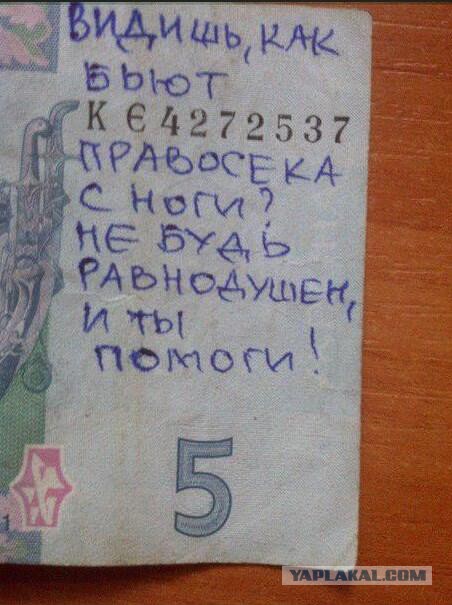 ВИДИШЬ, КАК
БЬЮТ
КЄ4272537
ПРАВОСЕКА
С НОГИ?
НЕ БУДЬ
РАВНОДУШЕН,
И ТЫ
ПОМОГИ!
5
1
YAPLAKAL.COM